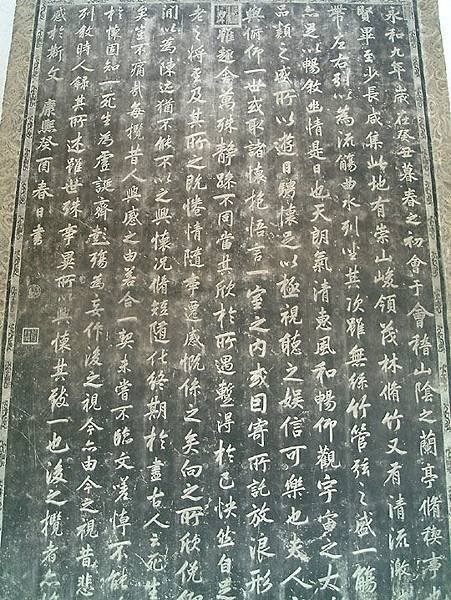 永和九年歲在癸丑暮春之初會于會稽山陰之蘭亭脩禊事也
賢畢至少長咸集此地有崇山峻領茂林脩竹又有清流激
帶左右引以為流觴曲水列坐其次雖無絲竹管弦之盛一觴
亦足以暢敘幽情是日也天朗氣清惠風和暢仰觀宇宙之大
品類之盛所以遊目騁懷足以極視聽之娛信可樂也夫人
與俯仰一世或取諸懷抱悟言一室之內或因寄所託放浪形
雖趣舍萬殊靜躁不同當其欣於所遇暫得於己怏然自足
老之將至及其所之既惓情隨事遷感慨係之矣向之所欣俛仰
間以為陳迹猶不能不以之興懷況脩短隨化終期於盡古人云死生
矣豈不痛哉每攬昔人興感之由若合一契未嘗不臨文嗟悼不能
於懷固知一死生為虛誕齊彭殤為妄作後之視今亦由今之視昔悲
列敘時人錄其所述雖世殊事異所以興懷其致一也後之攬者亦將
感於斯文 康熙癸酉春日書